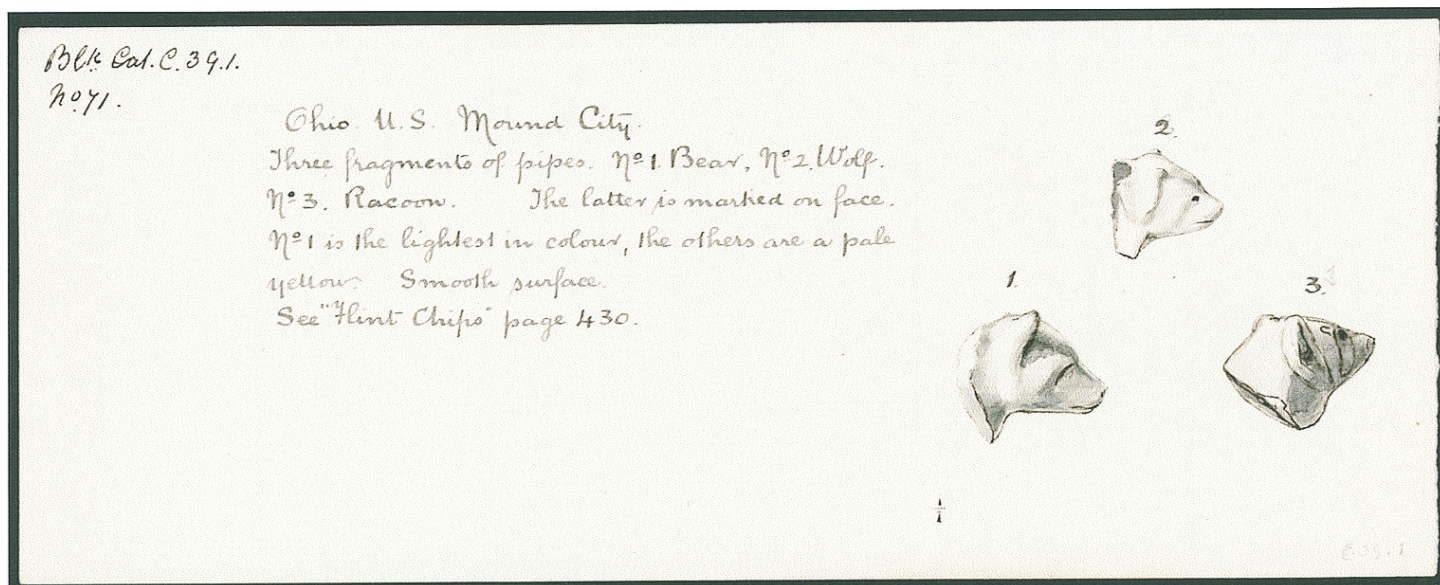 Blk Cat. C. 39.1.
No 71.
Ohio. U.S. Mound City.
Three fragments of pipes. No 1. Bear, No 2. Wolf.
No 3. Racoon. The latter is marked on face.
No 1 is the lightest in colour, the others are a pale
yellow. Smooth surface.
See "Flint Chips" page 430.
2.
1.
3.
1/1